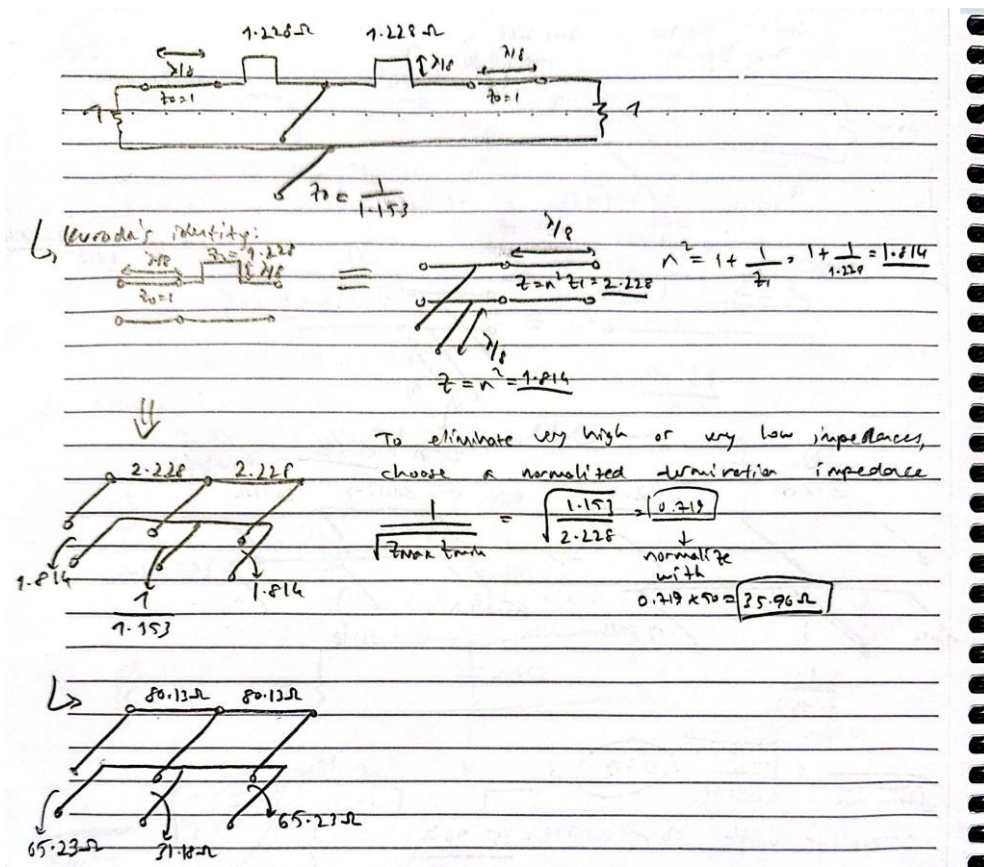 1.228Ω 1.228Ω
λ/8 λ/8 λ/8
z₀=1 z₀=1
1 1
z₀ = 1/1.153
Kuroda's identity:
λ/8 z₁=1.228 λ/8
z₀=1
≡
λ/8
z=n²z₁=2.228
λ/8
z = n² = 1.814
n² = 1 + 1/z₁ = 1 + 1/1.228 = 1.814
To eliminate very high or very low impedances,
choose a normalized termination impedance
1/√(zmax zmin) = √(1.153/2.228) = 0.719
normalize
with
0.719 x 50 = 35.96Ω
2.228 2.228
1.814 1.814
1/1.153
80.13Ω 80.13Ω
65.23Ω 31.18Ω 65.23Ω